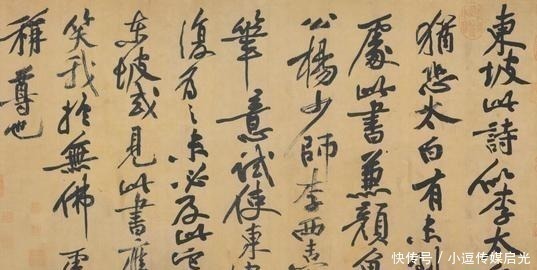 東坡此詩似李太
猶恐太白有未
處此書兼顏魯
公楊少師李西臺
筆意試使東
復為之未必及此
東坡或見此書應
笑我於無佛處
稱尊也
快传号 / 小逗传媒启光